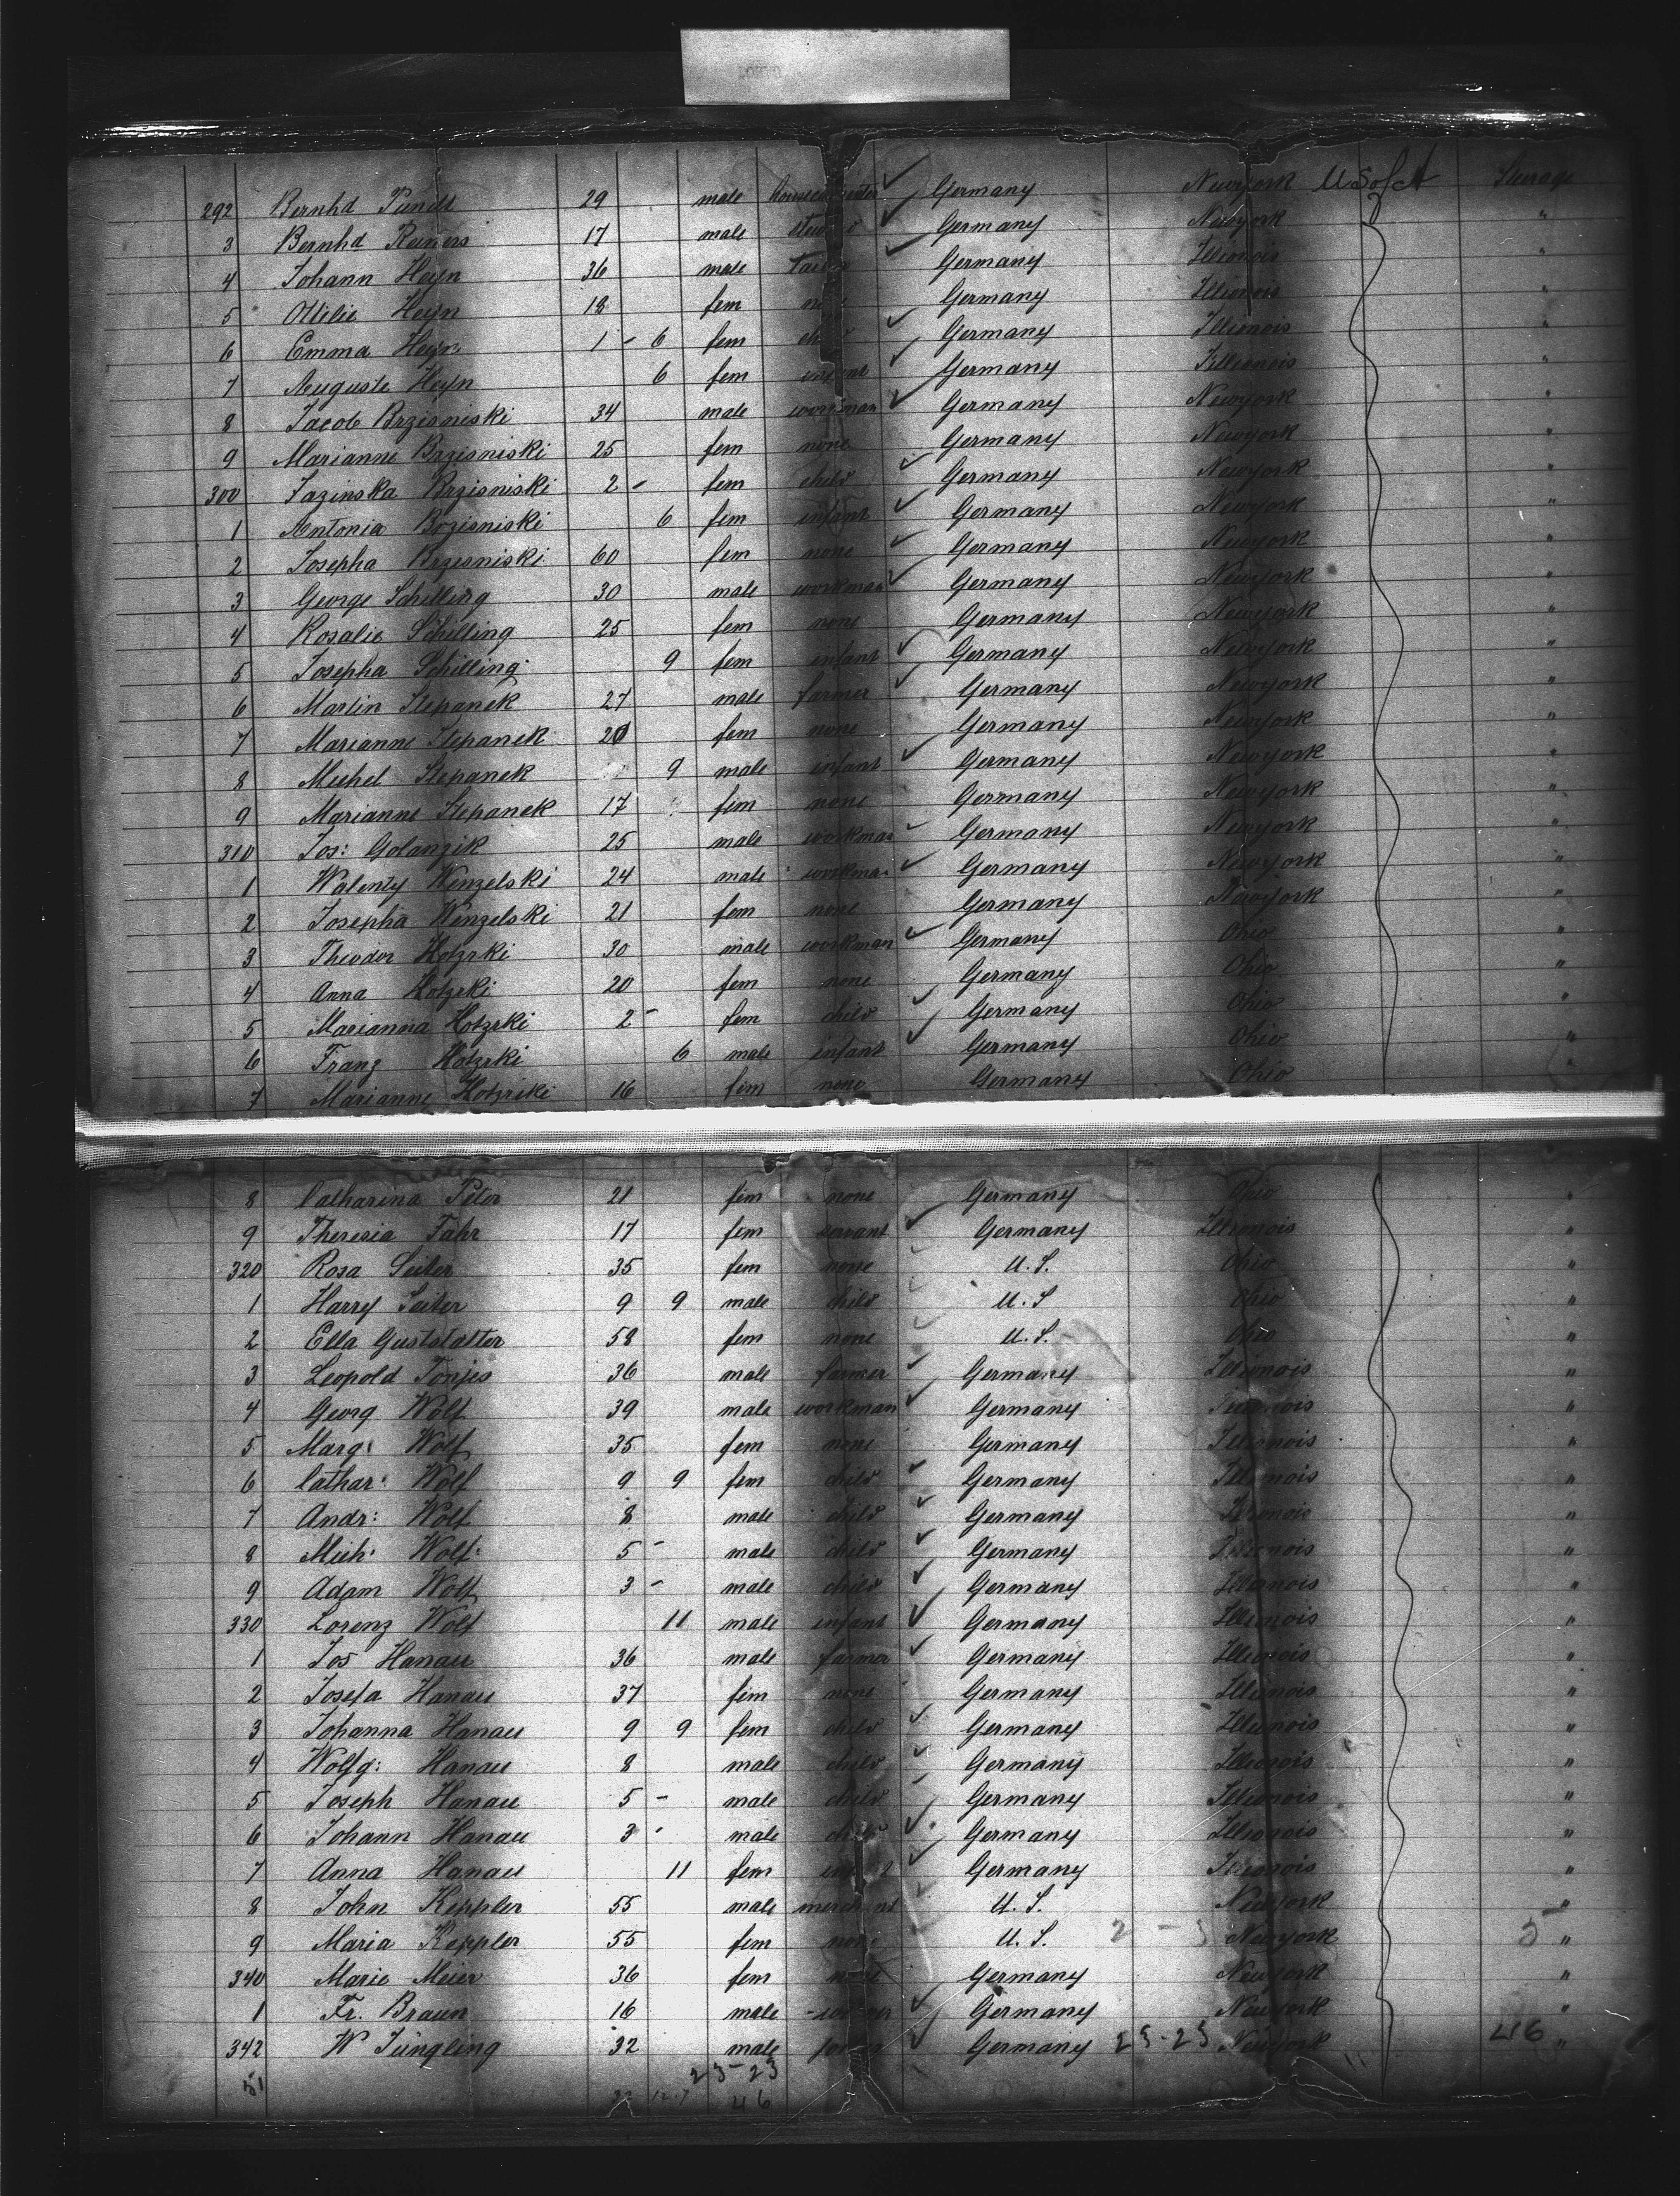 292 Bernhd Pundt 29 male Germany Newyork U S of A Steerage
3 Bernhd Reiners 17 male Germany Newyork "
4 Johann Heyn 36 male Germany Illionois "
5 Ottilie Heyn 18 fem Germany Illionois "
6 Emma Heyn 1 - 6 fem Germany Illionois "
7 Auguste Heyn 6 fem Germany Illionois "
8 Jacob Brzisniski 34 male workman Germany Newyork "
9 Marianne Brzisniski 25 fem none Germany Newyork "
300 Jazinska Brzisniski 2 - fem child Germany Newyork "
1 Antonia Brzisniski 6 fem infant Germany Newyork "
2 Josepha Brzisniski 60 fem none Germany Newyork "
3 George Schilling 30 male workman Germany Newyork "
4 Rosalie Schilling 25 fem none Germany Newyork "
5 Josepha Schilling 9 fem infant Germany Newyork "
6 Martin Stepanek 27 male farmer Germany Newyork "
7 Marianne Stepanek fem none Germany Newyork "
8 Michel Stepanek 9 male infant Germany Newyork "
9 Marianne Stepanek 17 fem none Germany Newyork "
310 Jos: Golanzik 25 male workman Germany Newyork "
1 Walenty Wenzelski 24 male workman Germany Newyork "
2 Josepha Wenzelski 21 fem none Germany Newyork "
3 Theodor Hotzrki 30 male workman Germany Ohio "
4 Anna Hotzrki 20 fem none Germany Ohio "
5 Marianna Hotzrki 2 - fem child Germany Ohio "
6 Franz Hotzrki 6 male infant Germany Ohio "
7 Marianne Hotzriki 16 fem none Germany Ohio "
8 Catharina Peter 21 fem none Germany Ohio "
9 Theresia Fahr 17 fem servant Germany Illionois "
320 Rosa Seiter 35 fem none U. S. Ohio "
1 Harry Seiter 9 9 male child U. S Ohio "
2 Ella Gutstatter 58 fem none U. S. Ohio "
3 Leopold Tönjes 36 male farmer Germany Illionois "
4 Georg Wolf 39 male workman Germany Illionois "
5 Marg: Wolf 35 fem none Germany Illionois "
6 Cathar: Wolf 9 9 fem child Germany Illionois "
7 Andr: Wolf 8 male child Germany Illionois "
8 Mich: Wolf 5 - male child Germany Illionois "
9 Adam Wolf 3 - male child Germany Illionois "
330 Lorenz Wolf 11 male infant Germany Illionois "
1 Jos Hanau 36 male farmer Germany Illionois "
2 Josefa Hanau 37 fem none Germany Illionois "
3 Johanna Hanau 9 9 fem child Germany Illionois "
4 Wolfg: Hanau 8 male child Germany Illionois "
5 Joseph Hanau 5 - male child Germany Illionois "
6 Johann Hanau 3 - male child Germany Illionois "
7 Anna Hanau 11 fem infant Germany Illionois "
8 John Keppler 55 male merchant U. S. Newyork "
9 Maria Keppler 55 fem none U. S. 2 - 3 Newyork 5 "
340 Marie Meier 36 fem none Germany Newyork "
1 Fr. Braun 16 male Germany Newyork "
342 W Jüngling 32 male Germany 23-23 Newyork 46 "
51 23-23
46